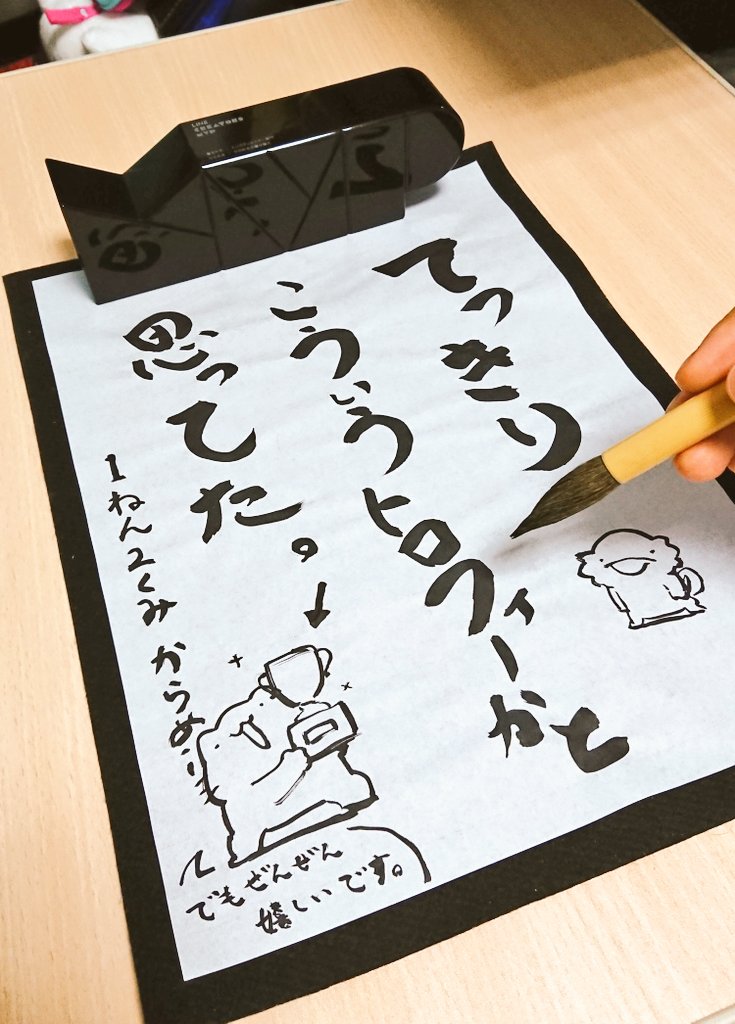 てっきり
こういうトロフィーかと
思ってた。
1ねん2くみ からめる
でもぜんぜん
嬉しいです。